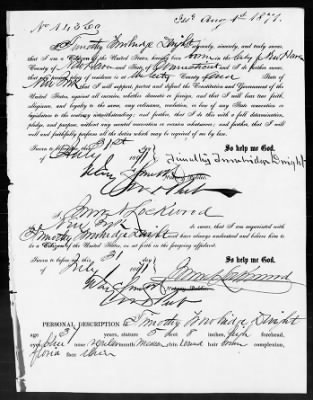 No 14360 Iss. Aug 1st 1871.
I, Timothy Trowbridge Dwight do solemnly, sincerely, and truly swear
that I am a Citizen of the United States, having been born in the City of New Haven
County of New Haven State of Connecticut and I do further swear,
that my present place of residence is at the City County of
New York that I will support, protect and defend the Constitution and Government of the
United States, against all enemies, whether domestic or foreign, and that I will bear true faith,
allegiance, and loyalty to the same, any ordinance, resolution, or law of any State convention or
legislature to the contrary notwithstanding; and further, that I do this with a full determination,
pledge, and purpose, without any mental reservation or evasion whatsoever; and further, that I will
well and faithfully perform all the duties which may be required of me by law.
So help me God.
Sworn to before me this 31st
July 1871
Timothy Trowbridge Dwight
I, James Lockwood
New York do swear, that I am acquainted with
Timothy Trowbridge Dwight and have always understood and believe him to
be a Citizen of the United States, as set forth in the foregoing affidavit.
Sworn to before me this 31 So help me God.
July 1871
Lockwood
Notary Public
PERSONAL DESCRIPTION of Timothy Trowbridge Dwight
age 31 years, stature 5 feet 8 inches, high forehead,
eyes blue nose regular mouth medium chin round hair brown complexion,
florid face